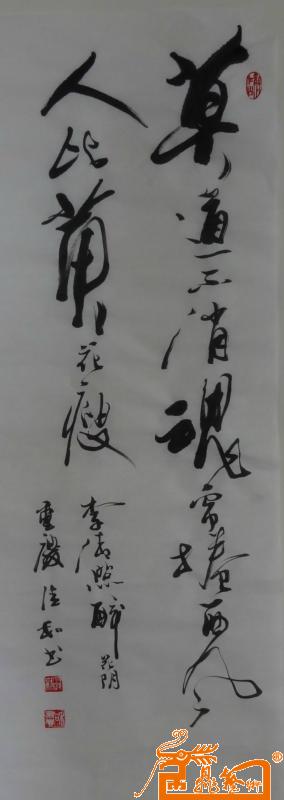 莫道不消魂帘捲西风
人比黄花瘦
李清照醉花阴
重慶 书